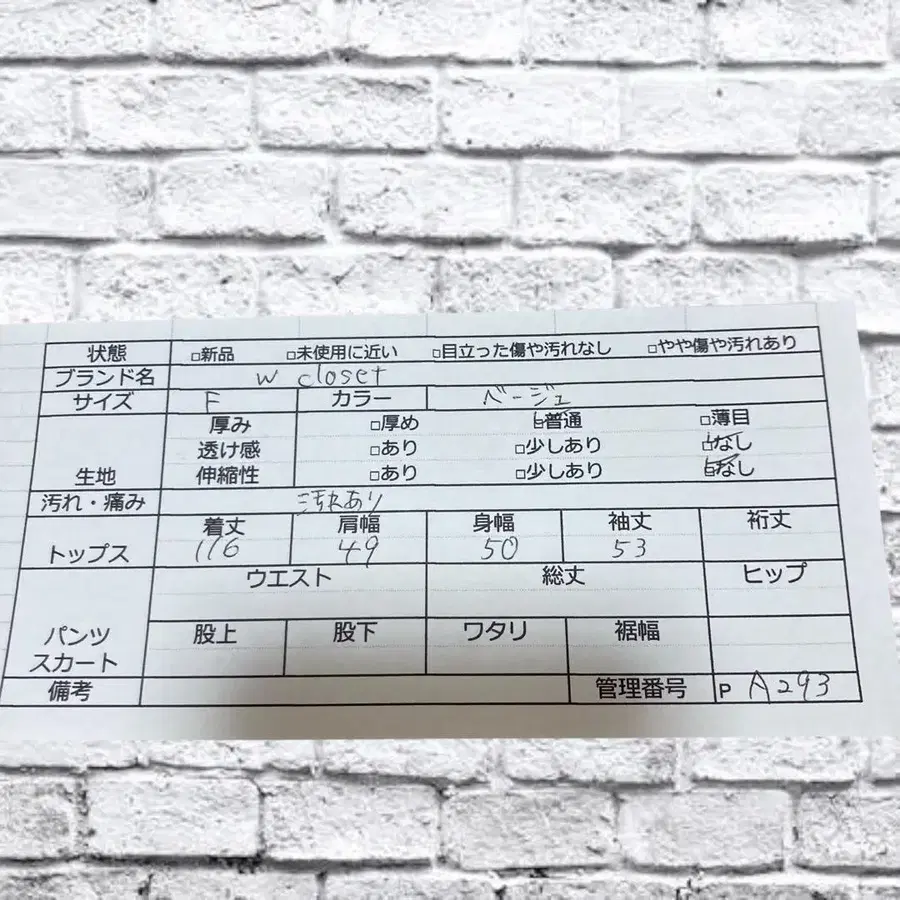 状態 □新品 □未使用に近い □目立った傷や汚れなし □やや傷や汚れあり
ブランド名 w closet
サイズ F カラー ベージュ
厚み □厚め ☑普通 □薄目
透け感 □あり □少しあり ☑なし
生地 伸縮性 □あり □少しあり ☑なし
汚れ・痛み 汚れあり
着丈 肩幅 身幅 袖丈 裄丈
トップス 116 49 50 53
ウエスト 総丈 ヒップ
パンツ 股上 股下 ワタリ 裾幅
スカート
備考 管理番号 P A293